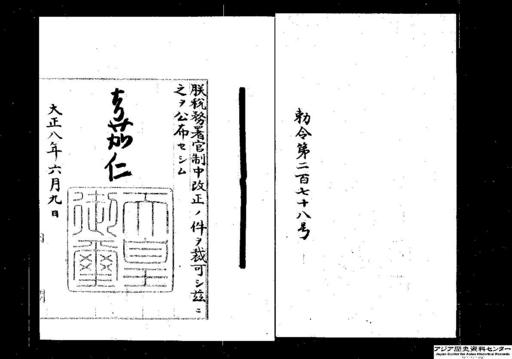 勅令第二百七十八号
朕税務署官制中改正ノ件ヲ裁可シ茲ニ
之ヲ公布セシム
嘉仁
天皇御璽
大正八年六月九日
アジア歴史資料センター
Japan Center for Asian Historical Records